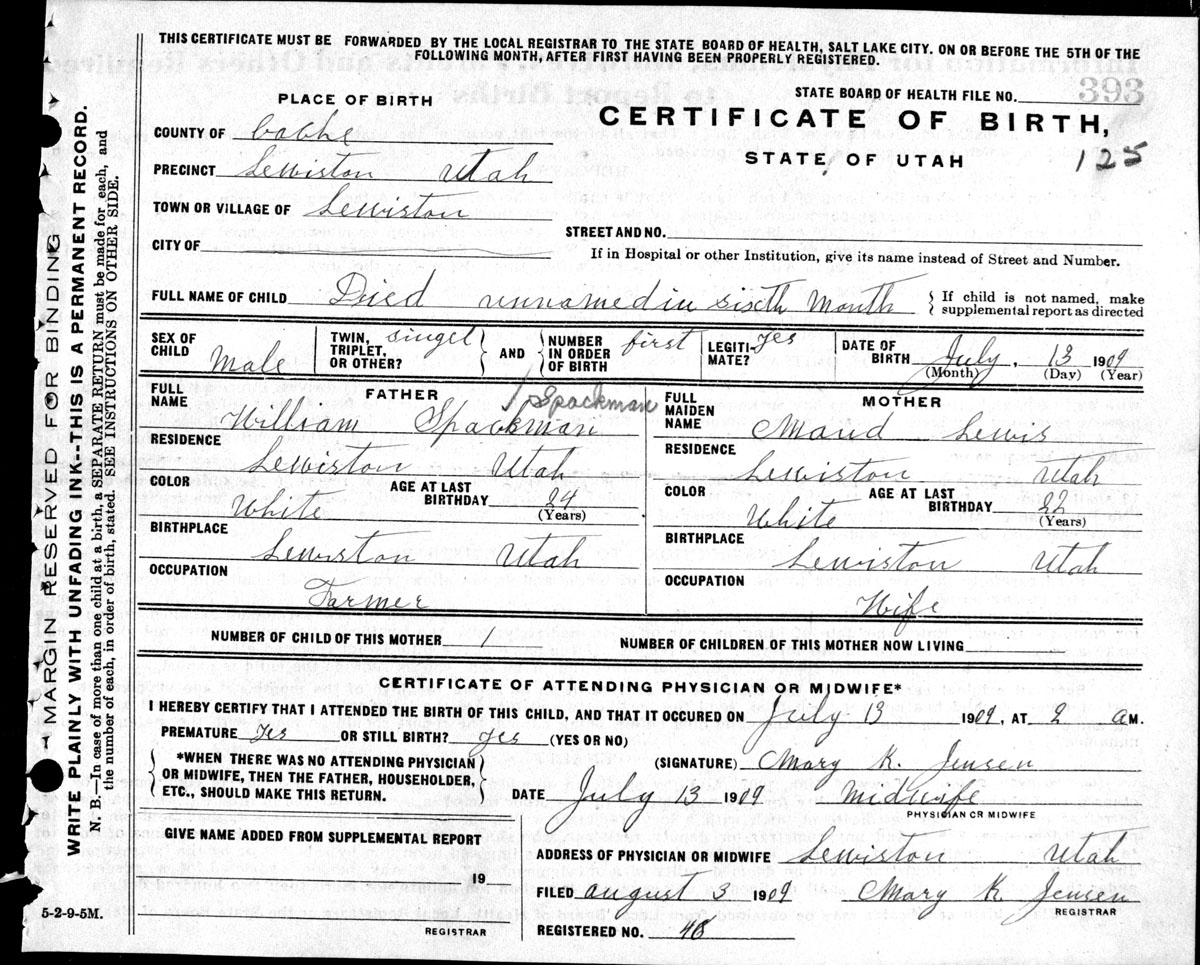 THIS CERTIFICATE MUST BE FORWARDED BY THE LOCAL REGISTRAR TO THE STATE BOARD OF HEALTH, SALT LAKE CITY. ON OR BEFORE THE 5TH OF THE
FOLLOWING MONTH, AFTER FIRST HAVING BEEN PROPERLY REGISTERED.
STATE BOARD OF HEALTH FILE NO. 393
PLACE OF BIRTH
CERTIFICATE OF BIRTH,
COUNTY OF Cache
STATE OF UTAH 125
PRECINCT Lewiston Utah
TOWN OR VILLAGE OF Lewiston
STREET AND NO.
CITY OF
If in Hospital or other Institution, give its name instead of Street and Number.
FULL NAME OF CHILD Died unnamed in sixth Month { If child is not named, make
supplemental report as directed
SEX OF CHILD Male
TWIN, TRIPLET, OR OTHER? singel
AND
NUMBER IN ORDER OF BIRTH first
LEGITI-MATE? yes
DATE OF BIRTH July, 13 1909
(Month) (Day) (Year)
FATHER
FULL NAME William Spackman
Spackman
RESIDENCE
Lewiston Utah
COLOR White AGE AT LAST BIRTHDAY 24
(Years)
BIRTHPLACE
Lewiston Utah
OCCUPATION
Farmer
MOTHER
FULL MAIDEN NAME Maud Lewis
RESIDENCE
Lewiston Utah
COLOR White AGE AT LAST BIRTHDAY 22
(Years)
BIRTHPLACE
Lewiston Utah
OCCUPATION
Wife
NUMBER OF CHILD OF THIS MOTHER 1 NUMBER OF CHILDREN OF THIS MOTHER NOW LIVING
CERTIFICATE OF ATTENDING PHYSICIAN OR MIDWIFE*
I HEREBY CERTIFY THAT I ATTENDED THE BIRTH OF THIS CHILD, AND THAT IT OCCURED ON July 13 1909, AT 2 a M.
PREMATURE Yes OR STILL BIRTH? yes (YES OR NO)
*WHEN THERE WAS NO ATTENDING PHYSICIAN
OR MIDWIFE, THEN THE FATHER, HOUSEHOLDER,
ETC., SHOULD MAKE THIS RETURN.
(SIGNATURE) Mary K. Jensen
DATE July 13 1909 Midwife
PHYSICIAN OR MIDWIFE
GIVE NAME ADDED FROM SUPPLEMENTAL REPORT
19
REGISTRAR
ADDRESS OF PHYSICIAN OR MIDWIFE Lewiston Utah
FILED August 3 1909 Mary K Jensen
REGISTRAR
REGISTERED NO.
5-2-9-5M.
MARGIN RESERVED FOR BINDING
WRITE PLAINLY WITH UNFADING INK--THIS IS A PERMANENT RECORD.
N. B.—In case of more than one child at a birth, a SEPARATE RETURN must be made for each, and
the number of each, in order of birth, stated. SEE INSTRUCTIONS ON OTHER SIDE.